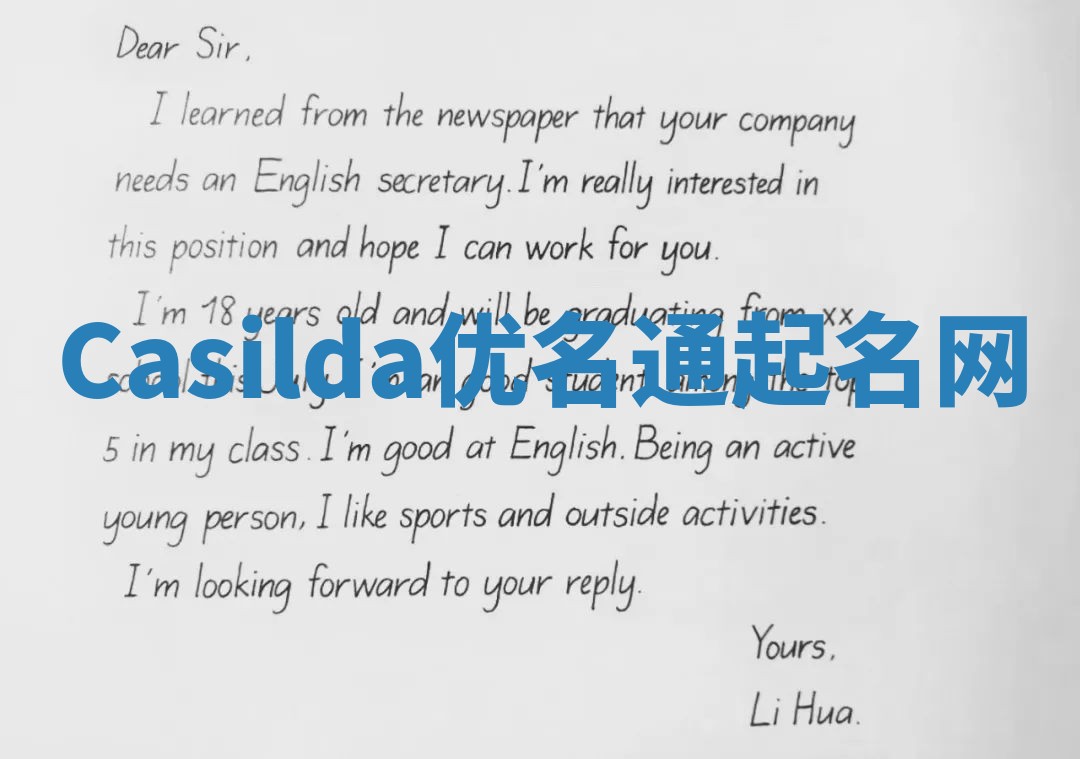 Dear Sir,
I learned from the newspaper that your company
needs an English secretary. I'm really interested in
this position and hope I can work for you.
I'm 18 years old and will be graduating from xx
Casilda优名通起名网
school this July. I'm a good student among the top
5 in my class. I'm good at English. Being an active
young person, I like sports and outside activities.
I'm looking forward to your reply.
Yours,
Li Hua.